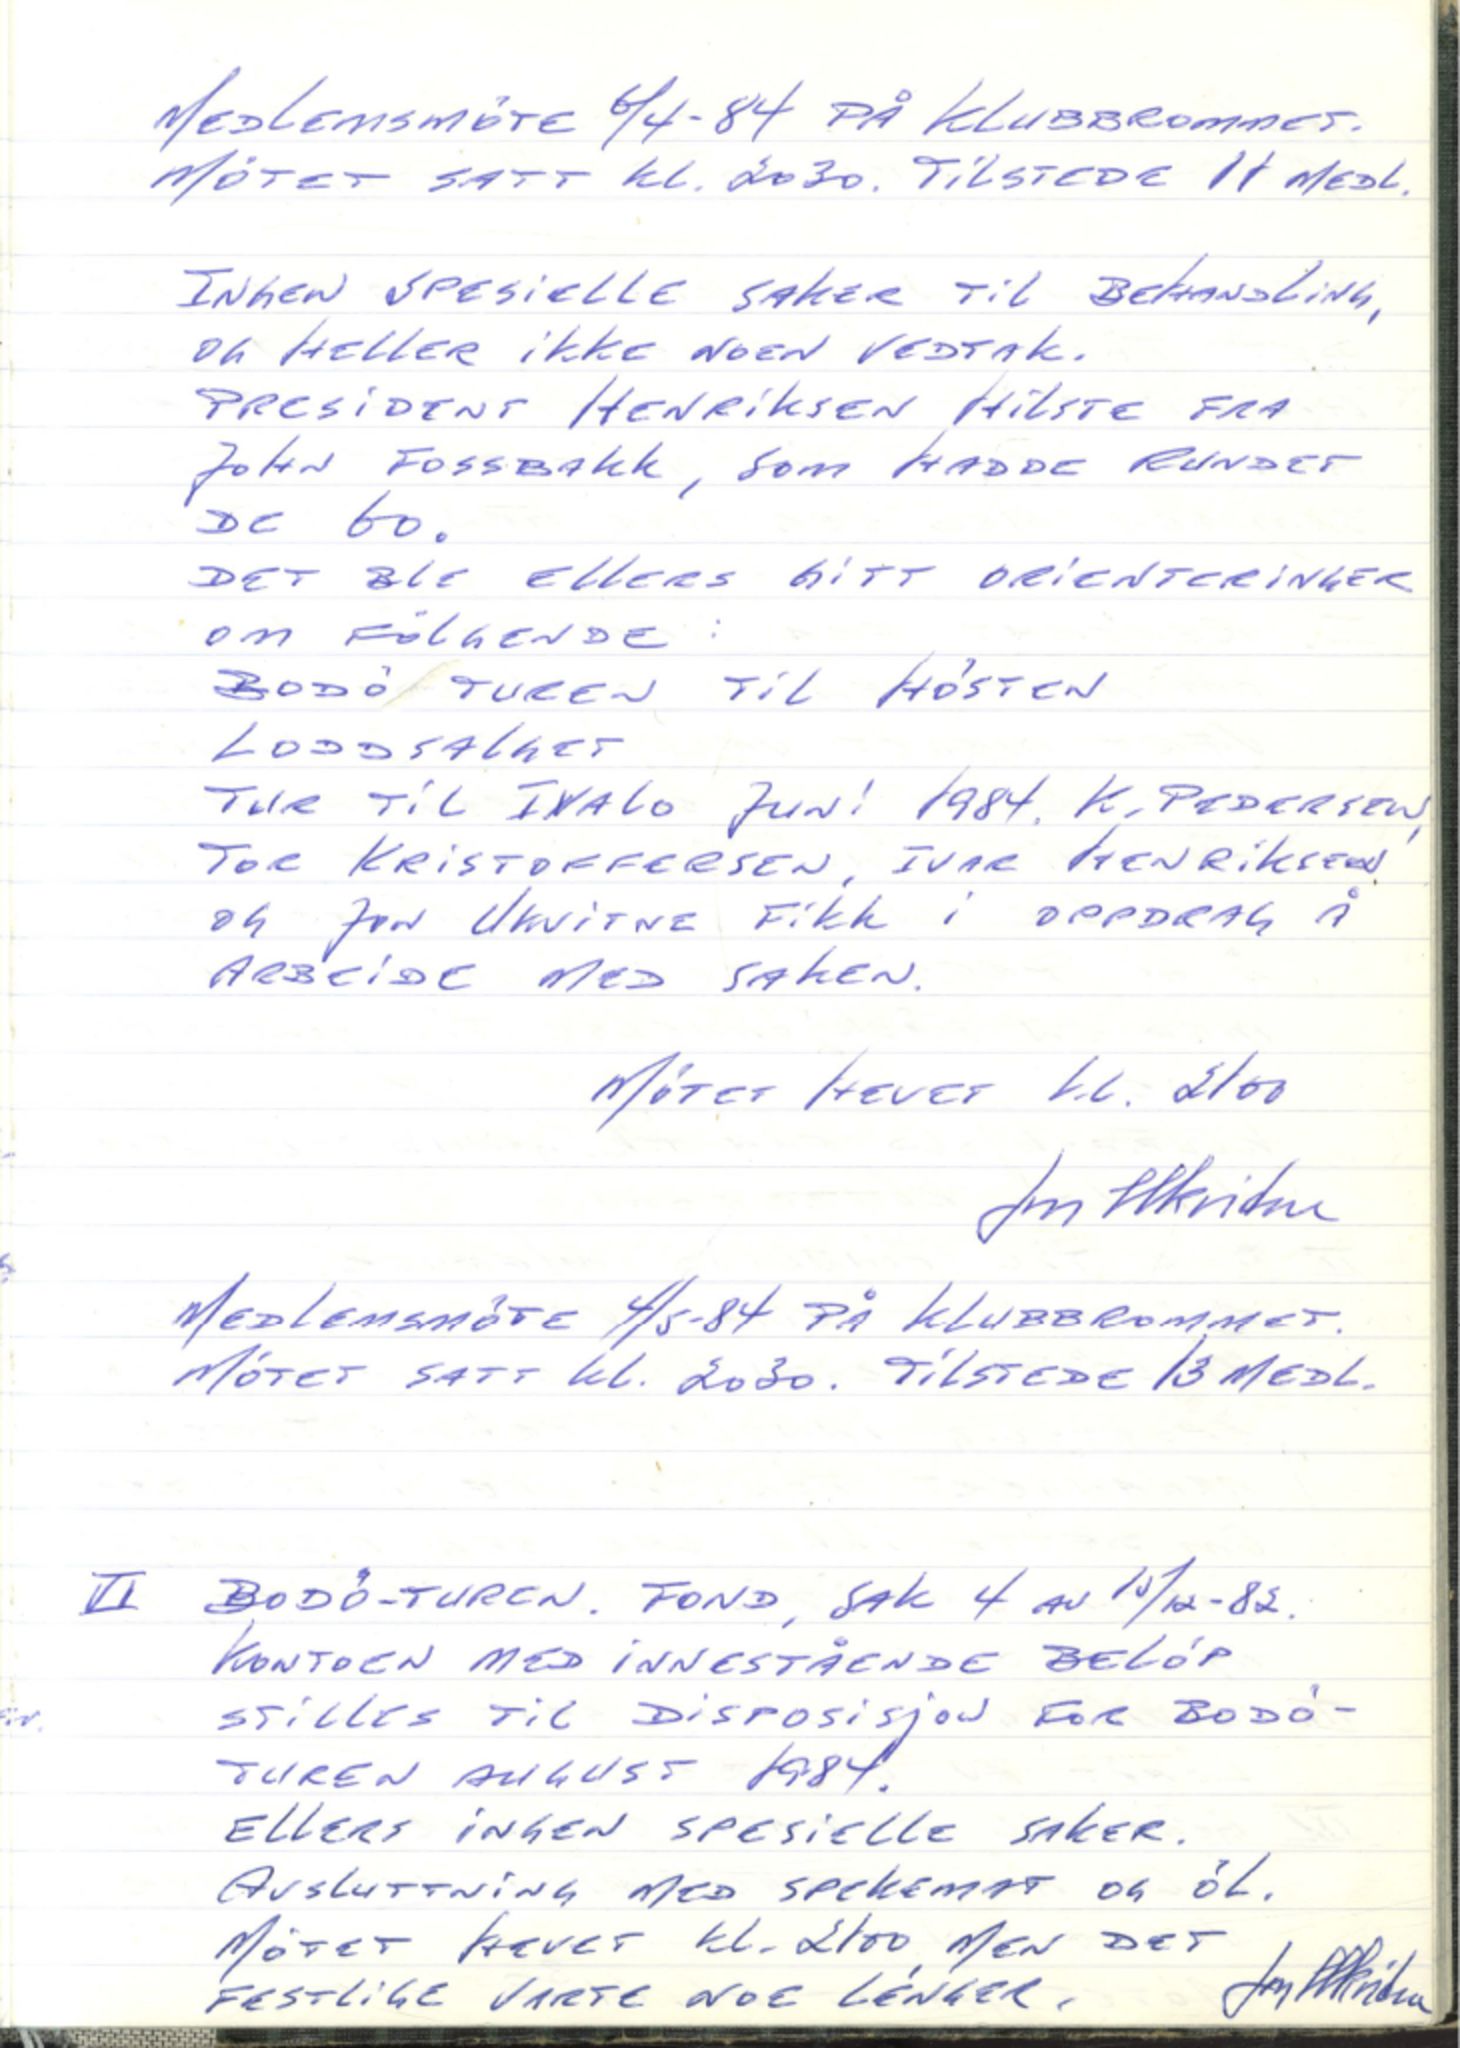 MEDLEMSMÖTE 6/4-84 PÅ KLUBBROMMET.
MÖTET SATT KL. 2030. TILSTEDE 11 MEDL.
INGEN SPESIELLE SAKER TIL BEHANDLING,
OG HELLER IKKE NOEN VEDTAK.
PRESIDENT HENRIKSEN HILSTE FRA
JOHN FOSSBAKK, SOM HADDE RUNDET
DE 60.
DET BLE ELLERS GITT ORIENTERINGER
OM FÖLGENDE:
BODÖ TUREN TIL HÖSTEN
LODDSALGET
TUR TIL IVALO JUNI 1984. K. PEDERSEN,
TOR KRISTOFFERSEN, IVAR HENRIKSEN
OG JON UKVITNE FIKK I OPPDRAG Å
ARBEIDE MED SAKEN.
MÖTET HEVET KL. 2100
Jon Ukvitne
MEDLEMSMÖTE 4/5-84 PÅ KLUBBROMMET.
MÖTET SATT KL. 2030. TILSTEDE 13 MEDL.
VI BODÖ-TUREN. FOND, SAK 4 AV 10/12-82.
KONTOEN MED INNESTÅENDE BELÖP
STILLES TIL DISPOSISJON FOR BODÖ-
TUREN AUGUST 1984.
ELLERS INGEN SPESIELLE SAKER.
AVSLUTTNING MED SPEKEMAT OG ÖL.
MÖTET HEVET KL. 2100, MEN DET
FESTLIGE VARTE NOE LENGER.
Jon Ukvitne